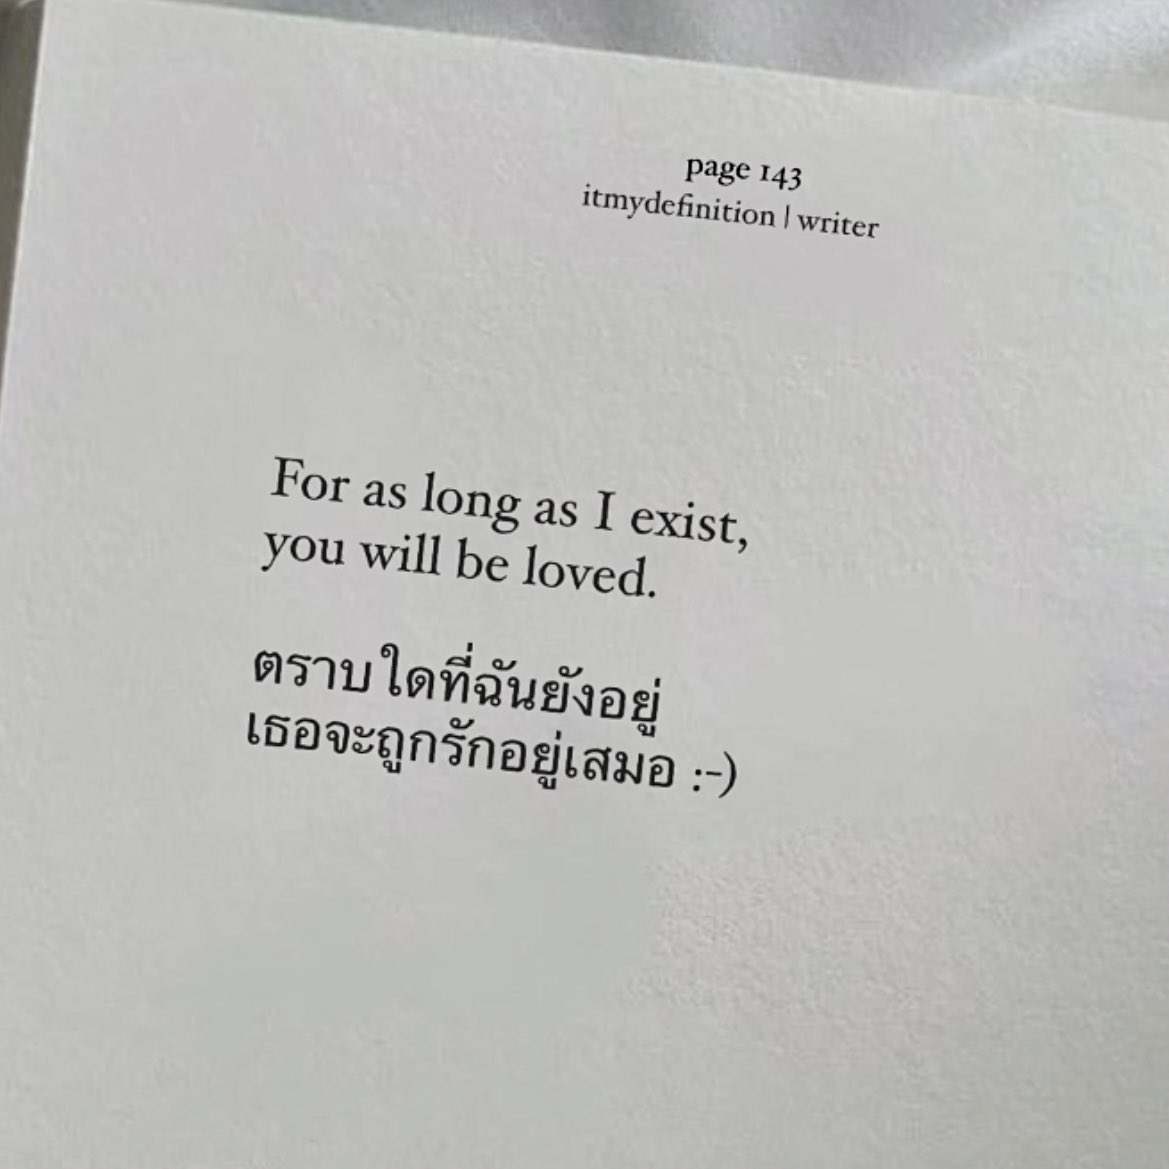 page 143
itmydefinition | writer
For as long as I exist,
you will be loved.
ตราบใดที่ฉันยังอยู่
เธอจะถูกรักอยู่เสมอ :-)